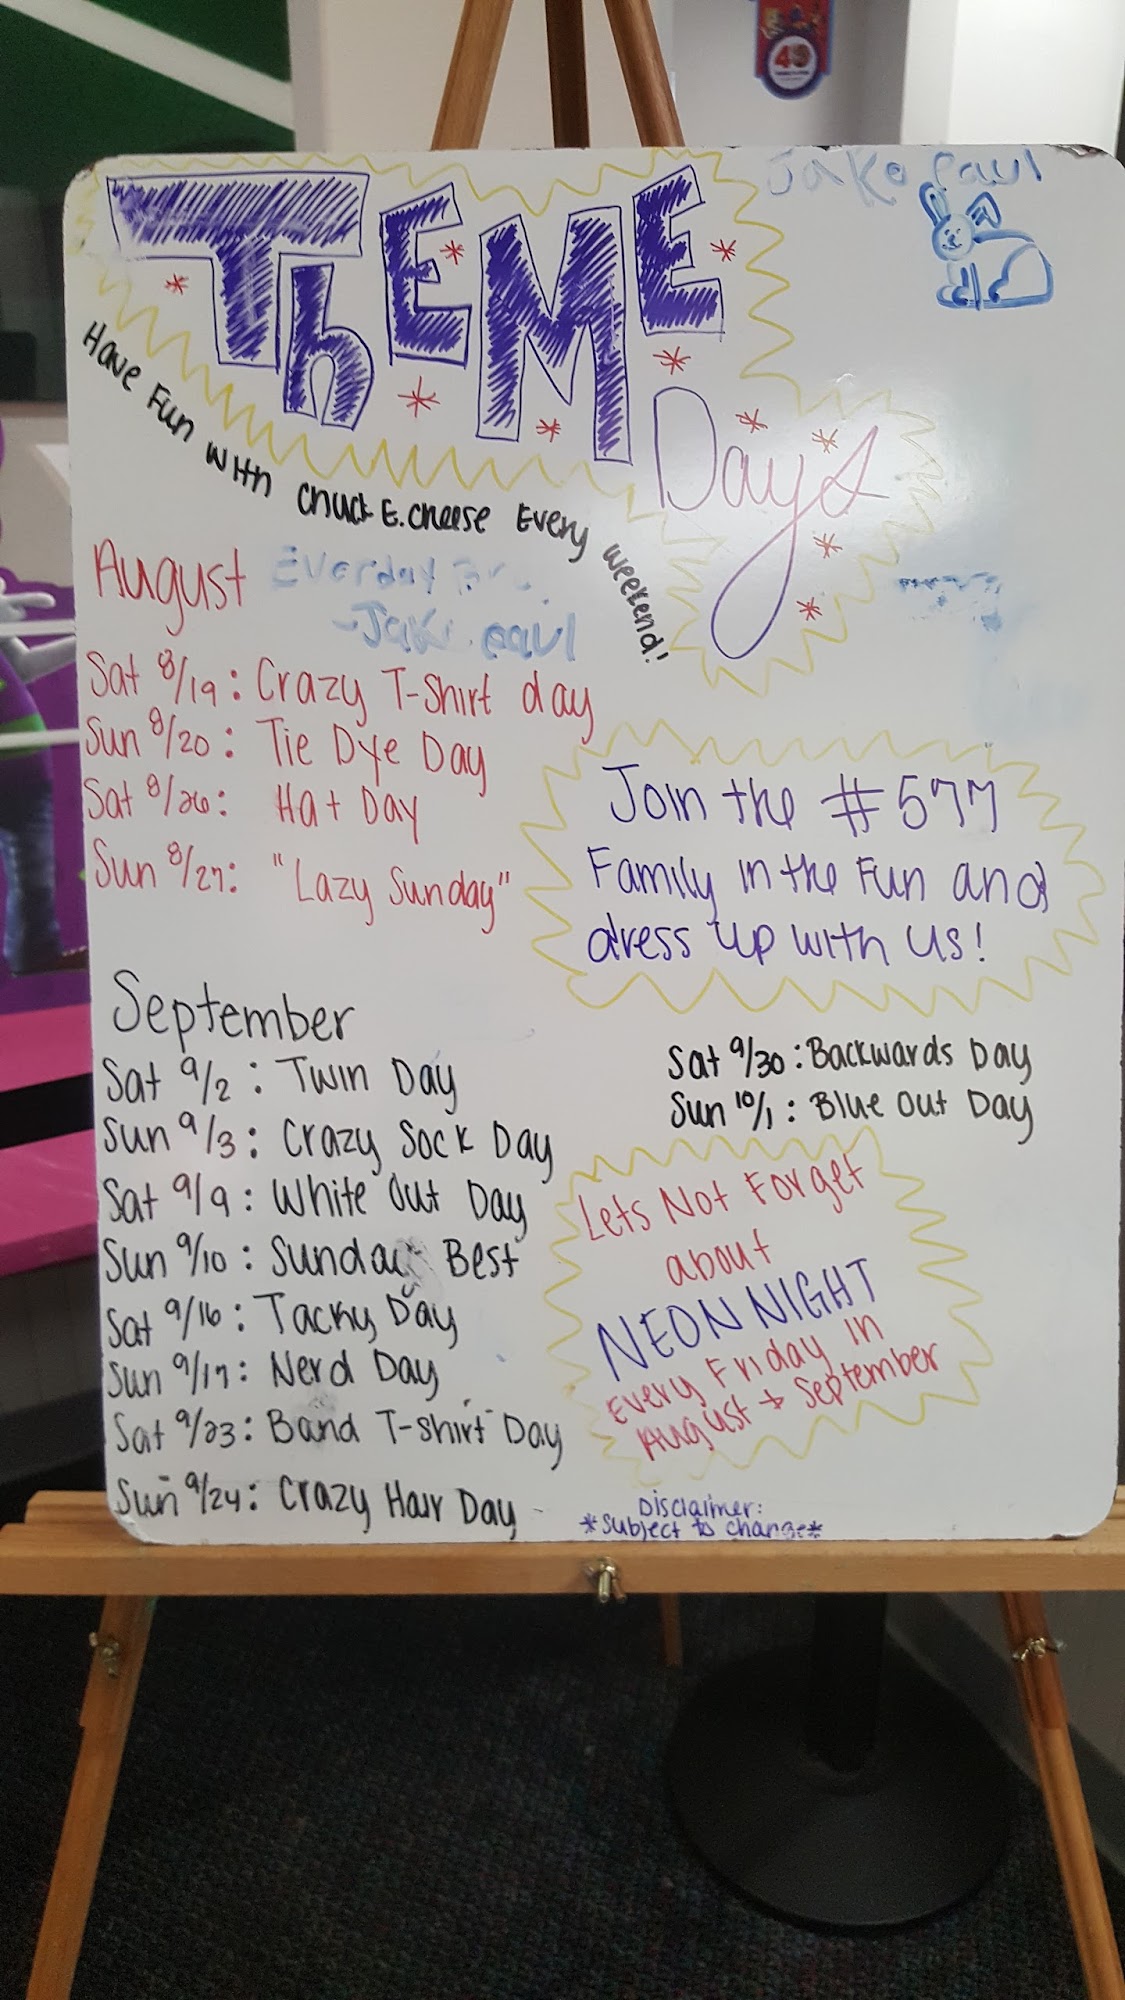 40
Jake Paul
ThEME
Days
Have Fun with Chuck E. Cheese Every weekend!
August
Everday
-Jake Paul
Sat 8/19: Crazy T-Shirt day
Sun 8/20: Tie Dye Day
Sat 8/26: Hat Day
Sun 8/27: "Lazy Sunday"
Join the #577
Family in the Fun and
dress up with us!
September
Sat 9/2: Twin Day
Sun 9/3: Crazy Sock Day
Sat 9/9: White Out Day
Sun 9/10: Sunday Best
Sat 9/16: Tacky Day
Sun 9/17: Nerd Day
Sat 9/23: Band T-shirt Day
Sun 9/24: Crazy Hair Day
Sat 9/30: Backwards Day
Sun 10/1: Blue Out Day
Lets Not Forget
about
NEON NIGHT
Every Friday in
August + September
Disclaimer:
*Subject to change*